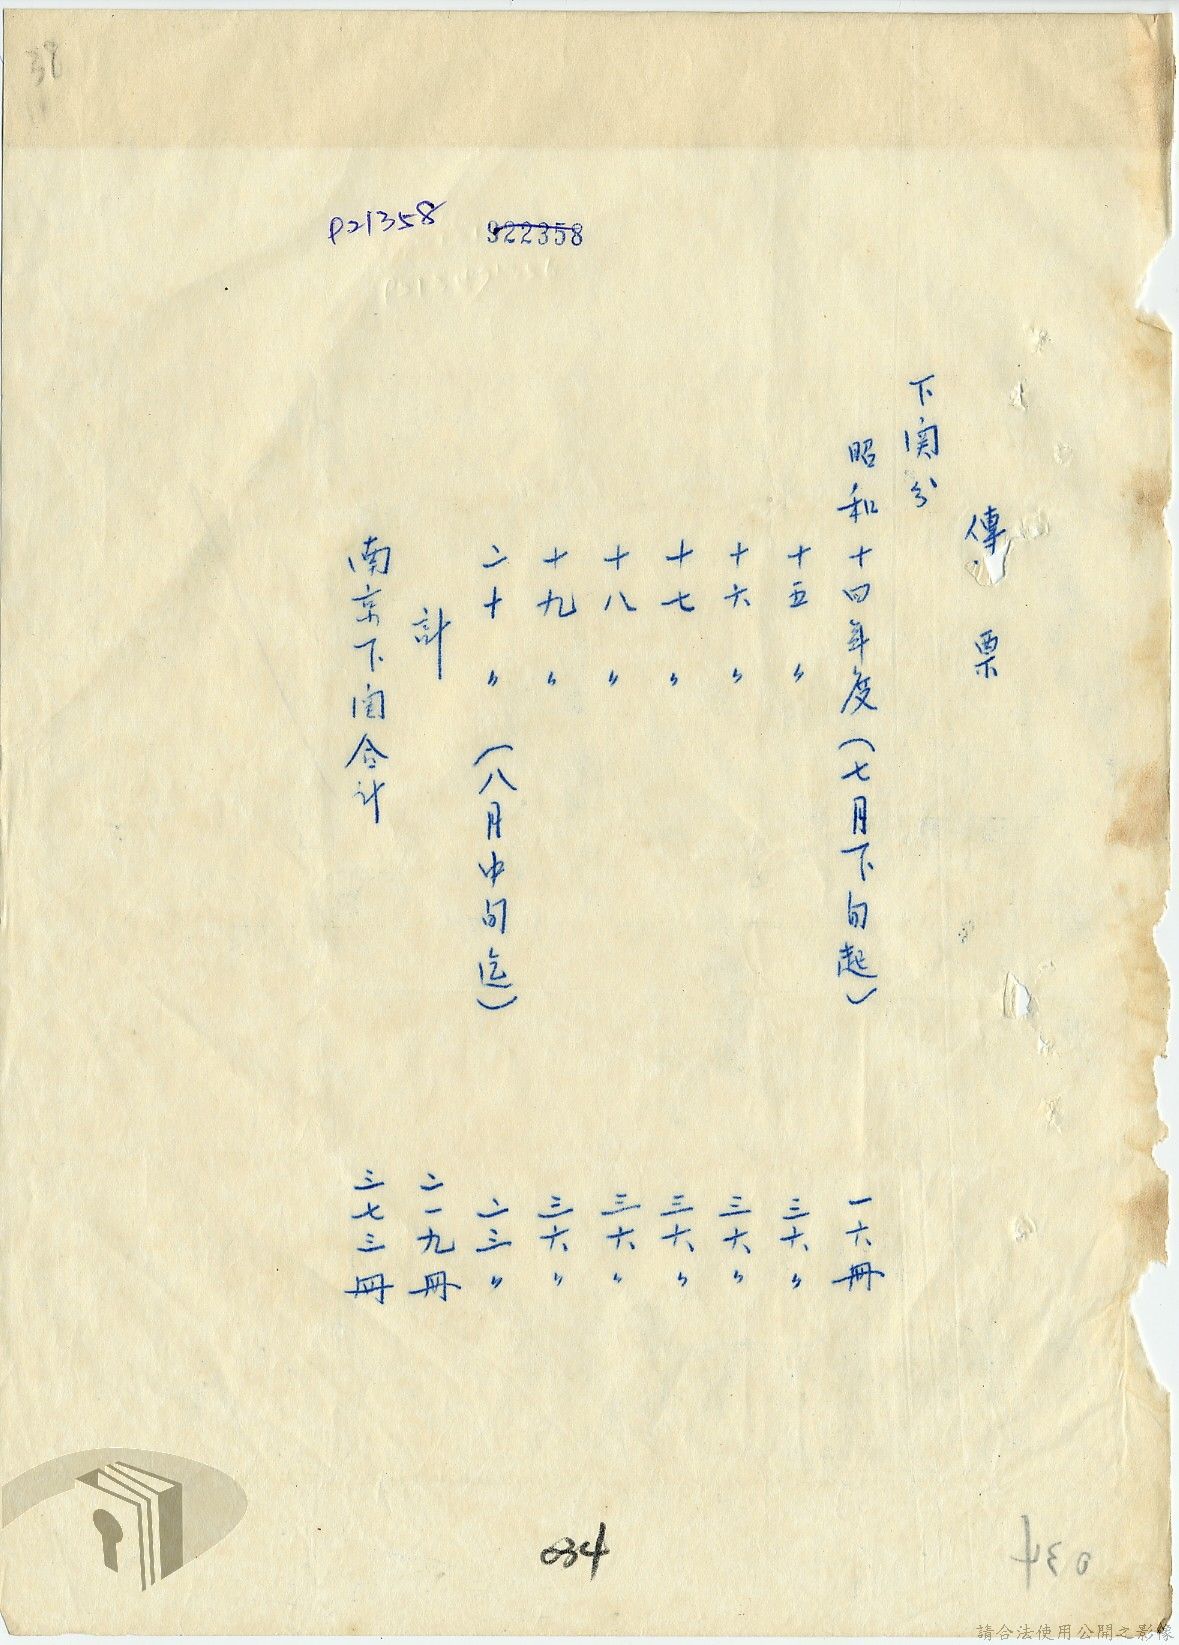 P21358
922358
傳票
下関分
昭和十四年度(七月下旬起) 一六冊
十五〃 三六〃
十六〃 三六〃
十七〃 三六〃
十八〃 三六〃
十九〃 三六〃
二十〃(八月中旬迄) 二三〃
計 二一九冊
南京下関合計 三七三冊
034
034
38
請合法使用公開之影像